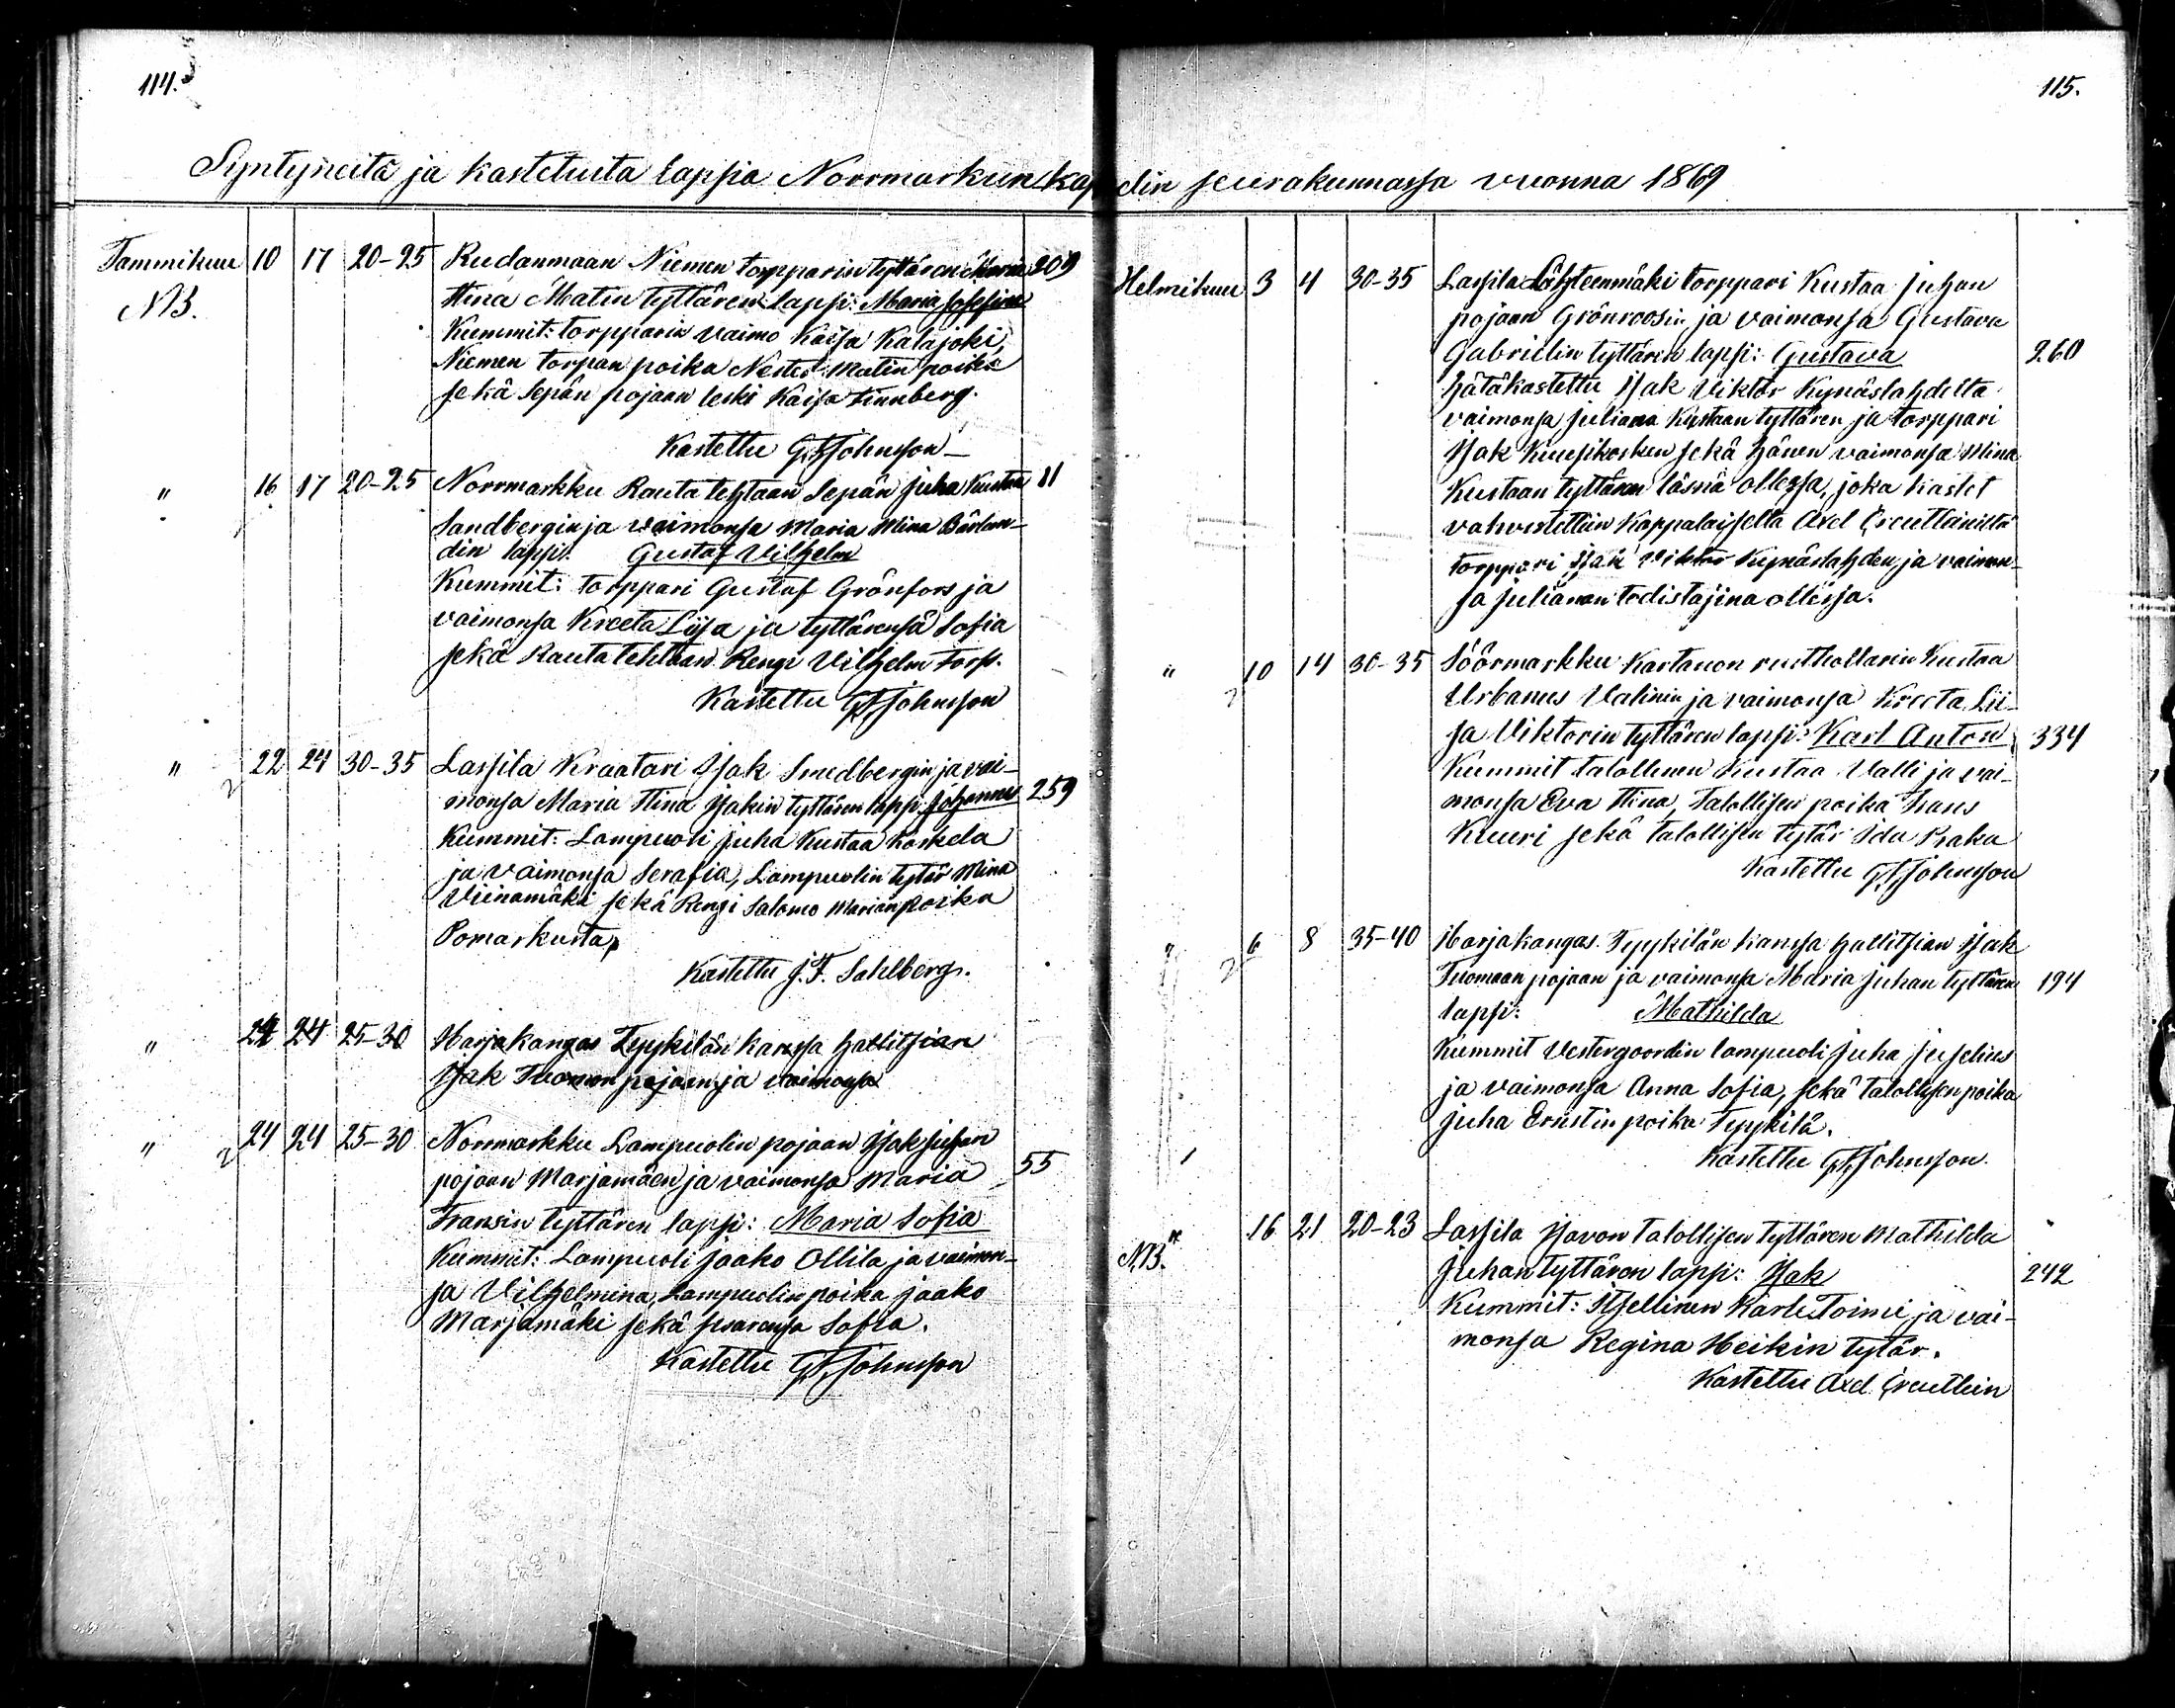 114.
Syntyneitä ja kastetuita lapsia Norrmarkun kap
Tammikuu 10 17 20-25 Rudanmaan Niemen torpparin tyttären Maria 209
NB. Stina Matin tyttären lapsi: Maria Josefina
Kummit: torpparin vaimo Kaisa Kalajoki,
Niemen torpan poika Nestor Matin poika
sekä Sepän pojaan leski Kaisa Finnberg.
Kastettu G.F. Johnsson
" 16 17 20-25 Norrmarkku Rauta tehtaan Sepän Juha Kustaa 11
Sandbergin ja vaimonsa Maria Mina Bärlun-
din lapsi: Gustaf Vilhelm
Kummit: torppari Gustaf Grönfors ja
vaimonsa Kreeta Liisa ja tyttärensä Sofia
sekä Rauta tehtaan Rengi Vilhelm Fors.
Kastettu G.F. Johnsson
" 22 24 30-35 Lassila Kraatari Isak Smedbergin ja vai-
monsa Maria Stina Isakin tyttären lapsi: Johannes 259
Kummit: Lampuoti Juha Kustaa Koskela
ja vaimonsa Serafia, Lampuotin tytär Mina
Viinamäki sekä Rengi Salomo Marian poika
Pomarkusta,
Kastettu J.F. Sahlberg.
" 24 24 25-30 Harjakangas Tyykilän kanssa hallitsian
Isak Tuoman pojaan ja vaimonsa
" 24 24 25-30 Norrmarkku Lampuotin pojaan Isak Juhan
pojaan Marjamäen ja vaimonsa Maria 55
Fransin tyttären lapsi: Maria Sofia
Kummit: Lampuoti Jaako Ollila ja vaimon-
sa Vilhelmina, Lampuotin poika Jaako
Marjamäki sekä sisarensa Sofia.
Kastettu G.F. Johnsson
115.
elin seurakunnassa vuonna 1869
Helmikuu 3 4 30-35 Lassila Lähteenmäki torppari Kustaa Juhan
pojaan Grönroosin ja vaimonsa Gustava
Gabrielin tyttären lapsi: Gustava 260
hätäkastettu Isak Viktor Kynäslahdelta
vaimonsa Juliana Kustaan tyttären ja torppari
Isak Kuusikosken sekä hänen vaimonsa Mina
Kustaan tyttären läsnä ollessa, joka kastet
vahvistettiin Kappalaiselta Axel Ereutleiniltä
torppari Isak Viktor Kynäslahden ja vaimon-
sa Julianan todistajina ollessa.
" 10 14 30-35 Söörmarkku Kartanon rusthollarin Kustaa
Urbanus Valinin ja vaimonsa Kreeta Lii-
sa Viktorin tyttären lapsi: Karl Anton 334
Kummit talollinen Kustaa Valli ja vai-
monsa Eva Stina, Talollisen poika Frans
Kuuri sekä talollisen tytär Ida Raka
Kastettu G.F. Johnsson
" 6 8 35-40 Harjakangas Tyykilän kanssa hallitsian Isak
Tuomaan pojaan ja vaimonsa Maria Juhan tyttären 194
lapsi: Mathilda
Kummit Vestergoordin lampuoti Juha Juselius
ja vaimonsa Anna Sofia, sekä talollisen poika
Juha Ernstin poika Tyykilä.
Kastettu G.F. Johnsson.
" 16 21 20-23 Lassila Isavon talollisen tyttären Mathilda
NB. Juhan tyttären lapsi: Isak 242
Kummit: Itsellinen Karle Toimi ja vai-
monsa Regina Heikin tytär.
Kastettu Axel Ereutlein